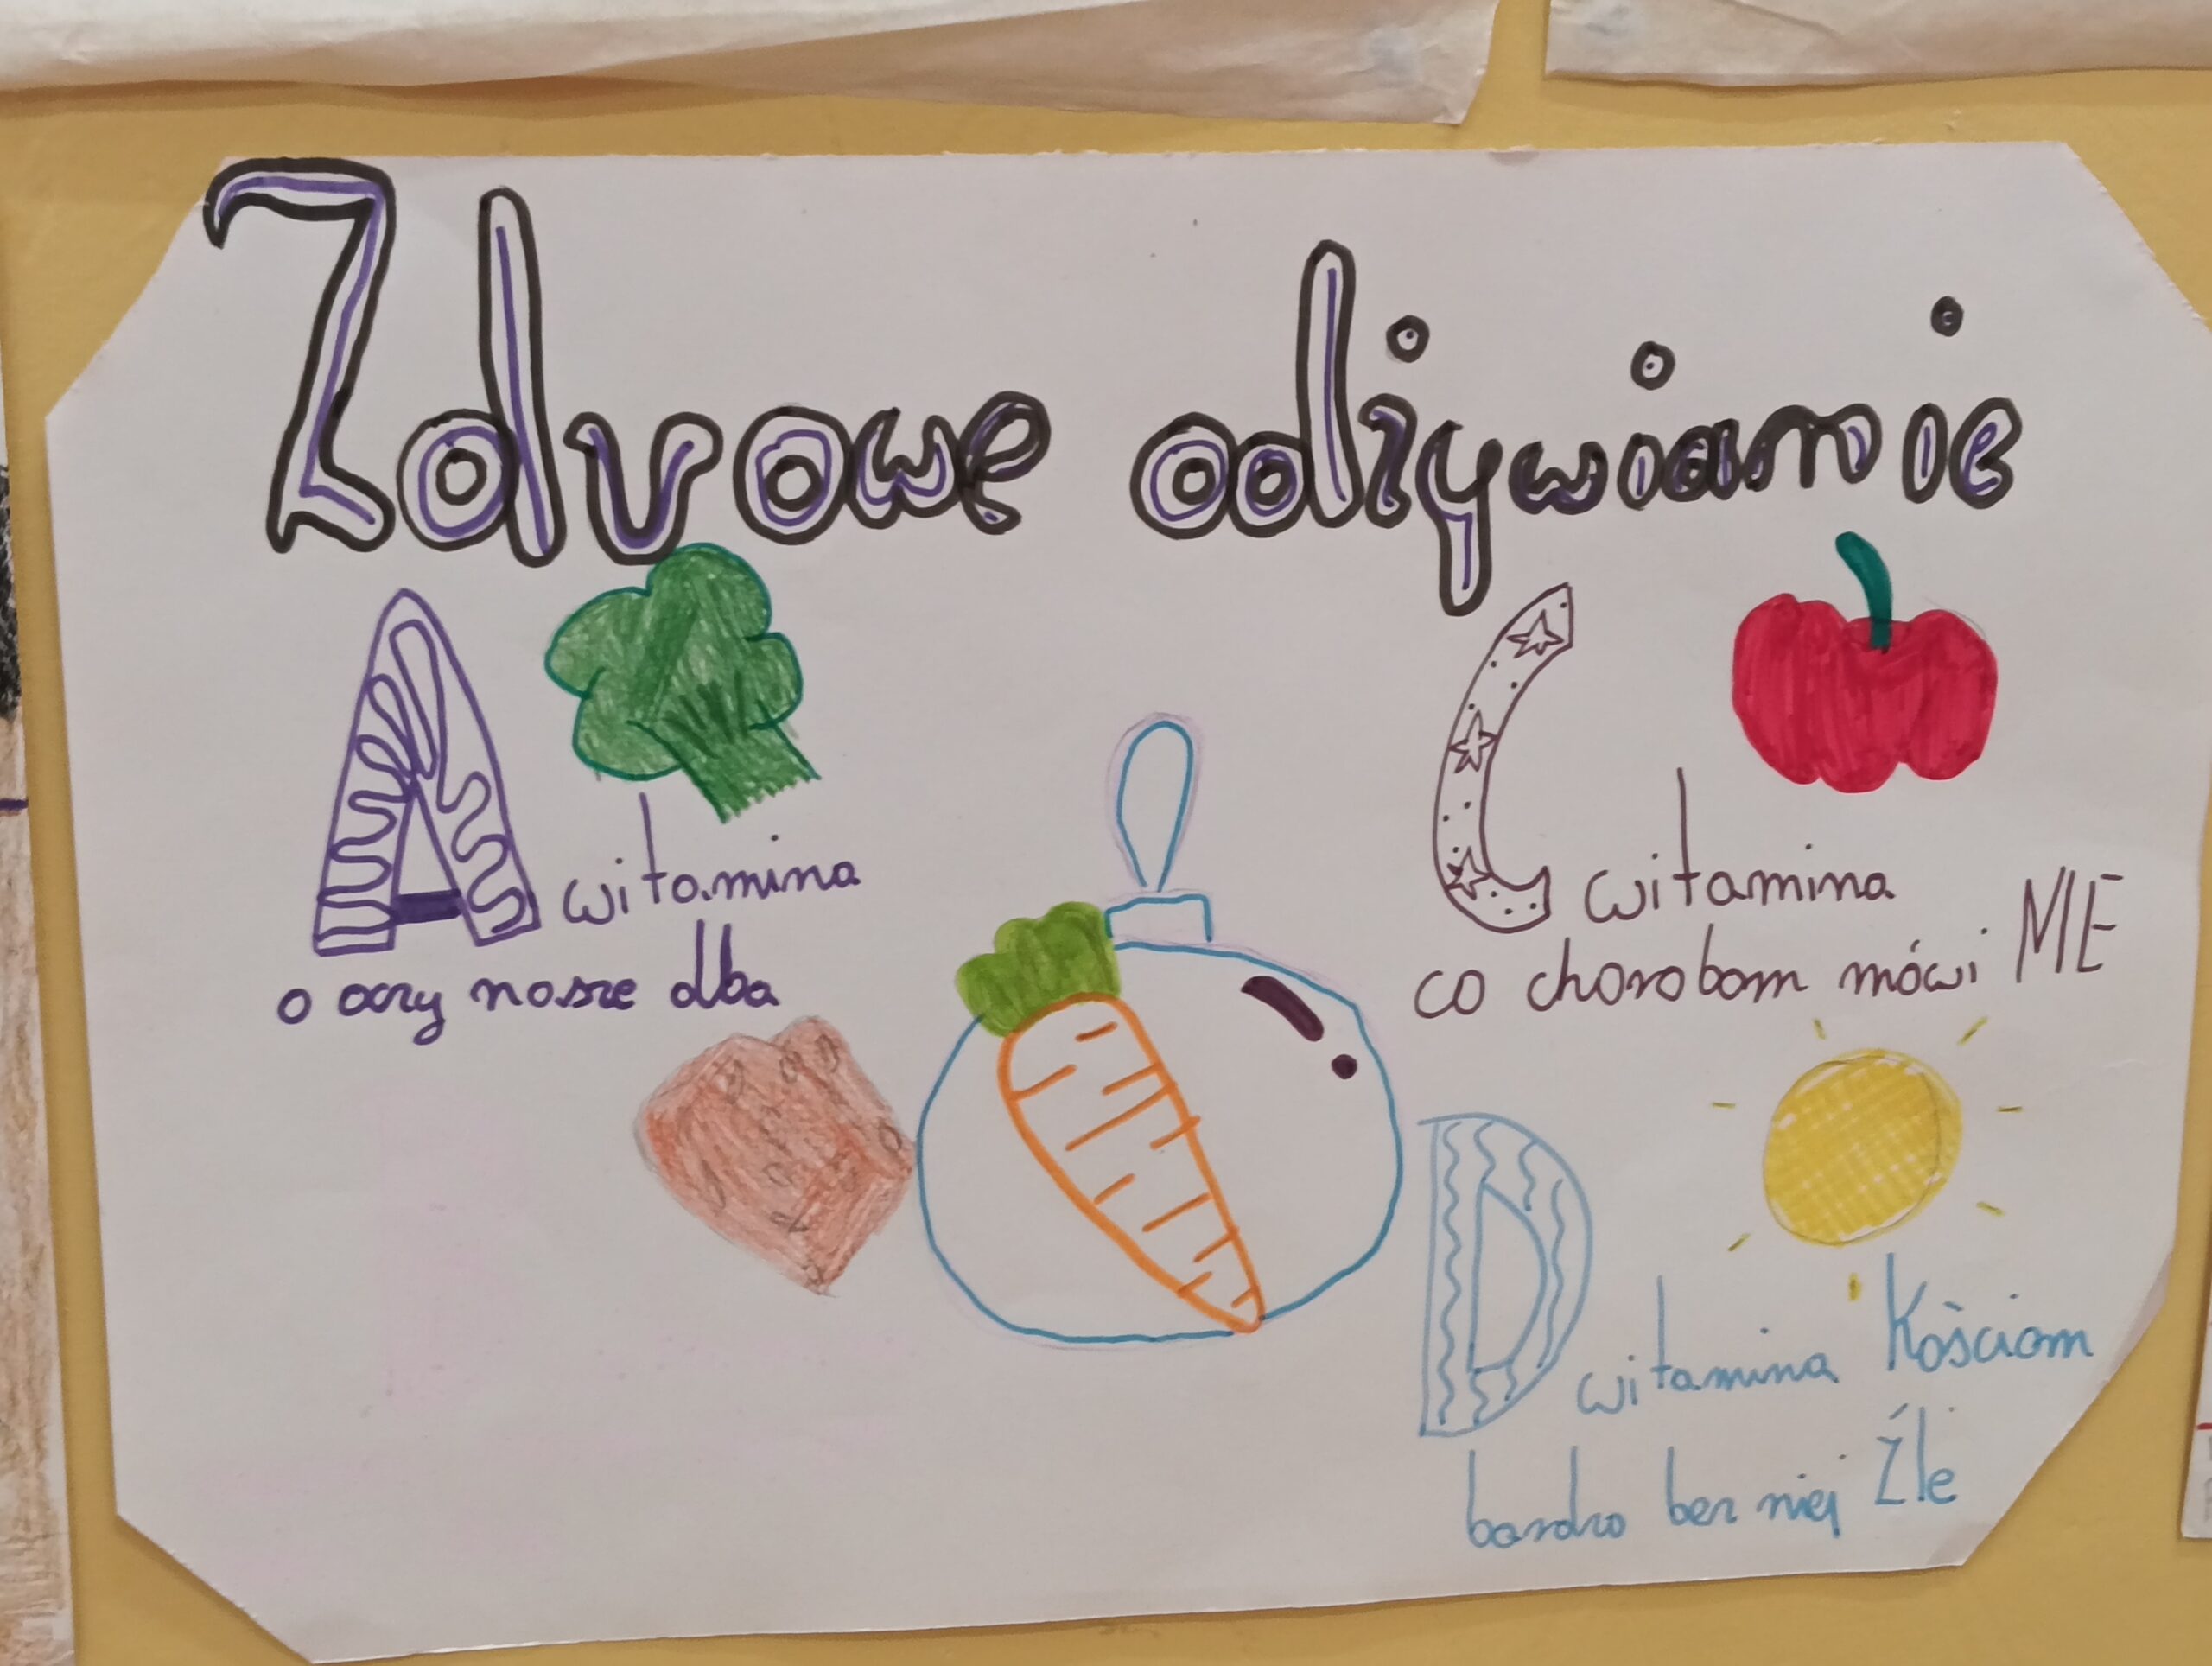 Zdrowe odżywianie
A witamina
o oczy nasze dba
C witamina
co chorobom mówi NIE
D witamina Kościom
bardzo bez niej Źle